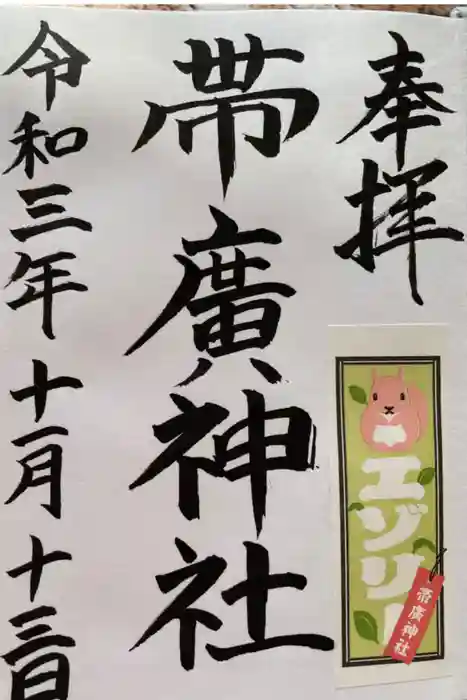 奉拝
帯廣神社
令和三年十一月十三日
エゾリー
帯廣神社